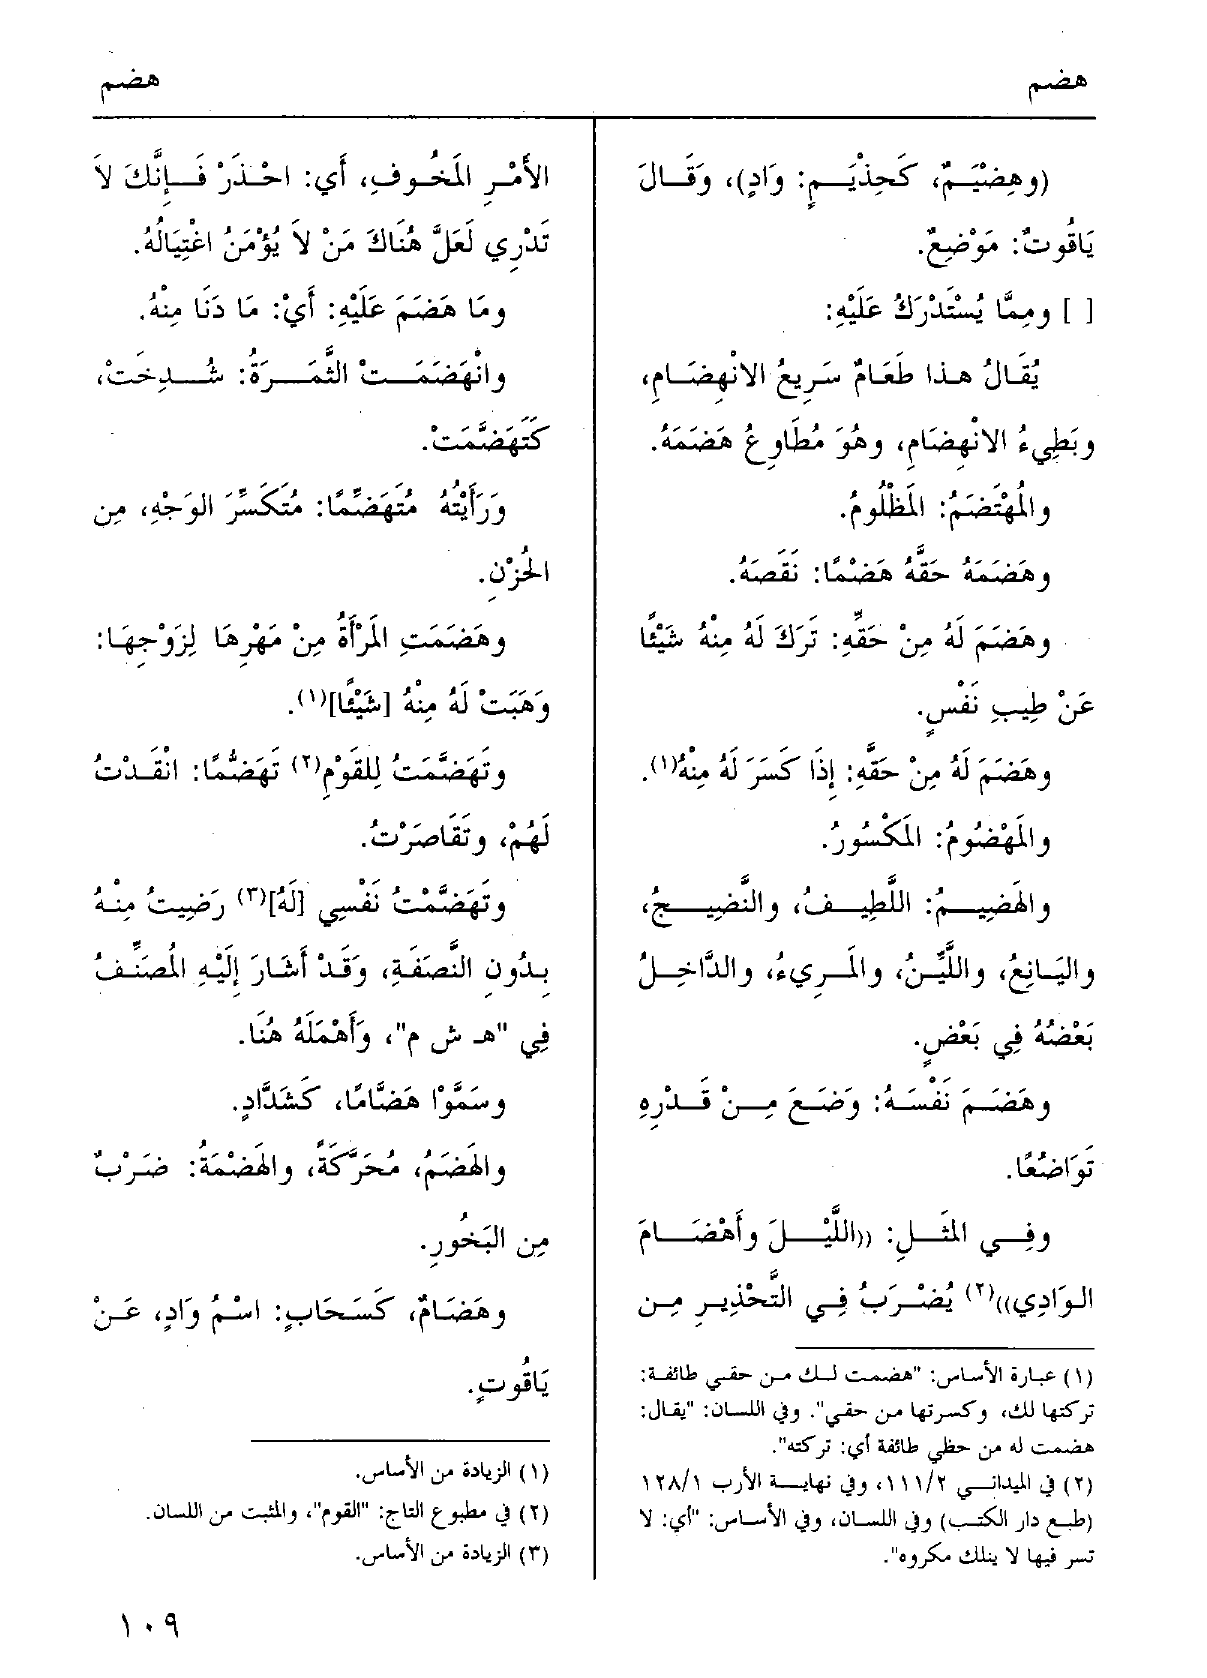 هضم
هضم
(وهِضْيَمٌ، كَحِذْيَمٍ: وَادٍ)، وَقَالَ
يَاقُوتٌ: مَوْضِعٌ.
[ ] ومِمَّا يُسْتَدْرَكُ عَلَيْهِ:
يُقَالُ هذا طَعَامٌ سَرِيعُ الانْهِضَامِ،
وبَطِيءُ الانْهِضَامِ، وهُوَ مُطَاوِعُ هَضَمَهُ.
والمُهْتَضَمُ: المَظْلُومُ.
وهَضَمَهُ حَقَّهُ هَضْمًا: نَقَصَهُ.
وهَضَمَ لَهُ مِنْ حَقِّهِ: تَرَكَ لَهُ مِنْهُ شَيْئًا
عَنْ طِيبِ نَفْسٍ.
وهَضَمَ لَهُ مِنْ حَقَّهِ: إِذَا كَسَرَ لَهُ مِنْهُ(١).
والمَهْضُومُ: المَكْسُورُ.
والهَضِيمُ: اللَّطِيفُ، والنَّضِيجُ،
واليَانِعُ، واللَّيِّنُ، والمَرِيءُ، والدَّاخِلُ
بَعْضُهُ فِي بَعْضٍ.
وهَضَمَ نَفْسَهُ: وَضَعَ مِنْ قَدْرِهِ
تَوَاضُعًا.
وفِي المَثَلِ: ((اللَّيْلَ وأَهْضَامَ
الوَادِي))(٢) يُضْرَبُ فِي التَّحْذِيرِ مِن
(١) عبارة الأساس: "هضمت لك من حقي طائفة:
تركتها لك، وكسرتها من حقي". وفي اللسان: "يقال:
هضمت له من حظي طائفة أي: تركته".
(٢) في الميداني ١١١/٢، وفي نهاية الأرب ١٢٨/١
(طبع دار الكتب) وفي اللسان، وفي الأساس: "أي: لا
تسر فيها لا ينلك مكروه".
الأَمْرِ المَخُوفِ، أَي: احْذَرْ فَإِنَّكَ لاَ
تَدْرِي لَعَلَّ هُنَاكَ مَنْ لاَ يُؤْمَنُ اغْتِيَالُهُ.
ومَا هَضَمَ عَلَيْهِ: أَيْ: مَا دَنَا مِنْهُ.
وانْهَضَمَتْ الثَّمَرَةُ: شُدِخَتْ،
كَتَهَضَّمَتْ.
وَرَأَيْتُهُ مُتَهَضِّمًا: مُتَكَسِّرَ الوَجْهِ، مِن
الحُزْنِ.
وهَضَمَتِ المَرْأَةُ مِنْ مَهْرِهَا لِزَوْجِهَا:
وَهَبَتْ لَهُ مِنْهُ [شَيْئًا](١).
وتَهَضَّمَتُ لِلقَوْمِ(٢) تَهَضُّمًا: انْقَدْتُ
لَهُمْ، وتَقَاصَرْتُ.
وتَهَضَّمْتُ نَفْسِي [لَهُ](٣) رَضِيتُ مِنْهُ
بِدُونِ النَّصَفَةِ، وَقَدْ أَشَارَ إِلَيْهِ المُصَنِّفُ
فِي "هـ ش م"، وَأَهْمَلَهُ هُنَا.
وسَمَّوْا هَضَّامًا، كَشَدَّادٍ.
والهَضَمُ، مُحَرَّكَةً، والهَضْمَةُ: ضَرْبٌ
مِن البَخُورِ.
وهَضَامٌ، كَسَحَابٍ: اسْمُ وَادٍ، عَنْ
يَاقُوتٍ.
(١) الزيادة من الأساس.
(٢) في مطبوع التاج: "القوم"، والمثبت من اللسان.
(٣) الزيادة من الأساس.
١٠٩